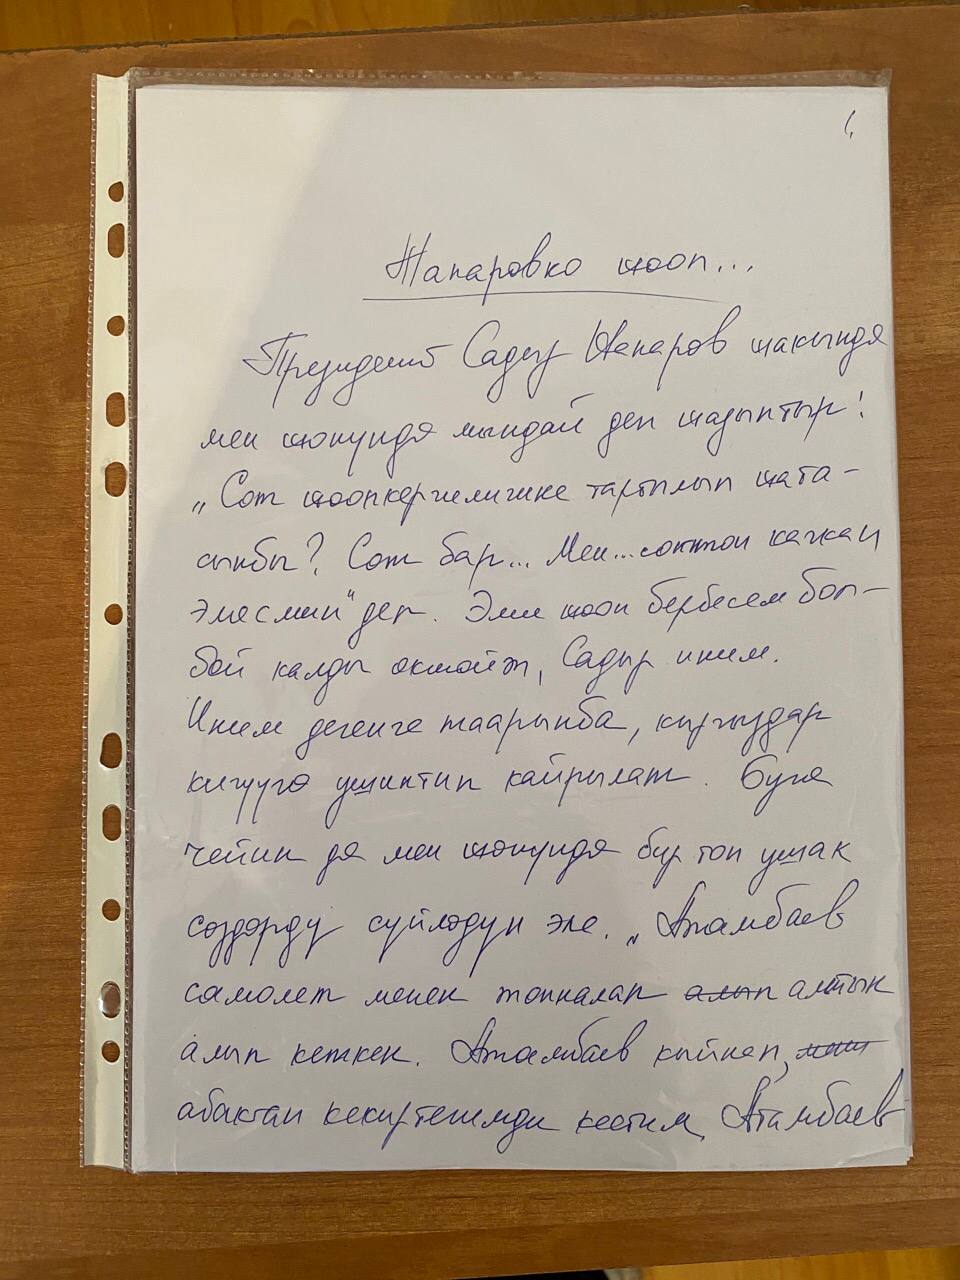 1,
Жапаровко жооп...
Президент Садыр Жапаров жакында
мен жөнүндө мындай деп жазыптыр:
„Сот жоопкерчиликке тартылып жата-
сыңбы? Сот бар... Мен... соттон качкан
эмесмин" деп. Эми жооп бербесем бол-
бой калды окшойт, Садыр иним.
Иним дегенге таарынба, кыргыздар
кичүүгө ушинтип кайрылат. Буга
чейин да мен жөнүндө бир топ ушак
сөздөрдү сүйлөдүң эле. „Атамбаев
самолет менен тонналап алып алтын
алып кеткен. Атамбаев кыйнап,
абактан кекиртегимди кестим, Атамбаев